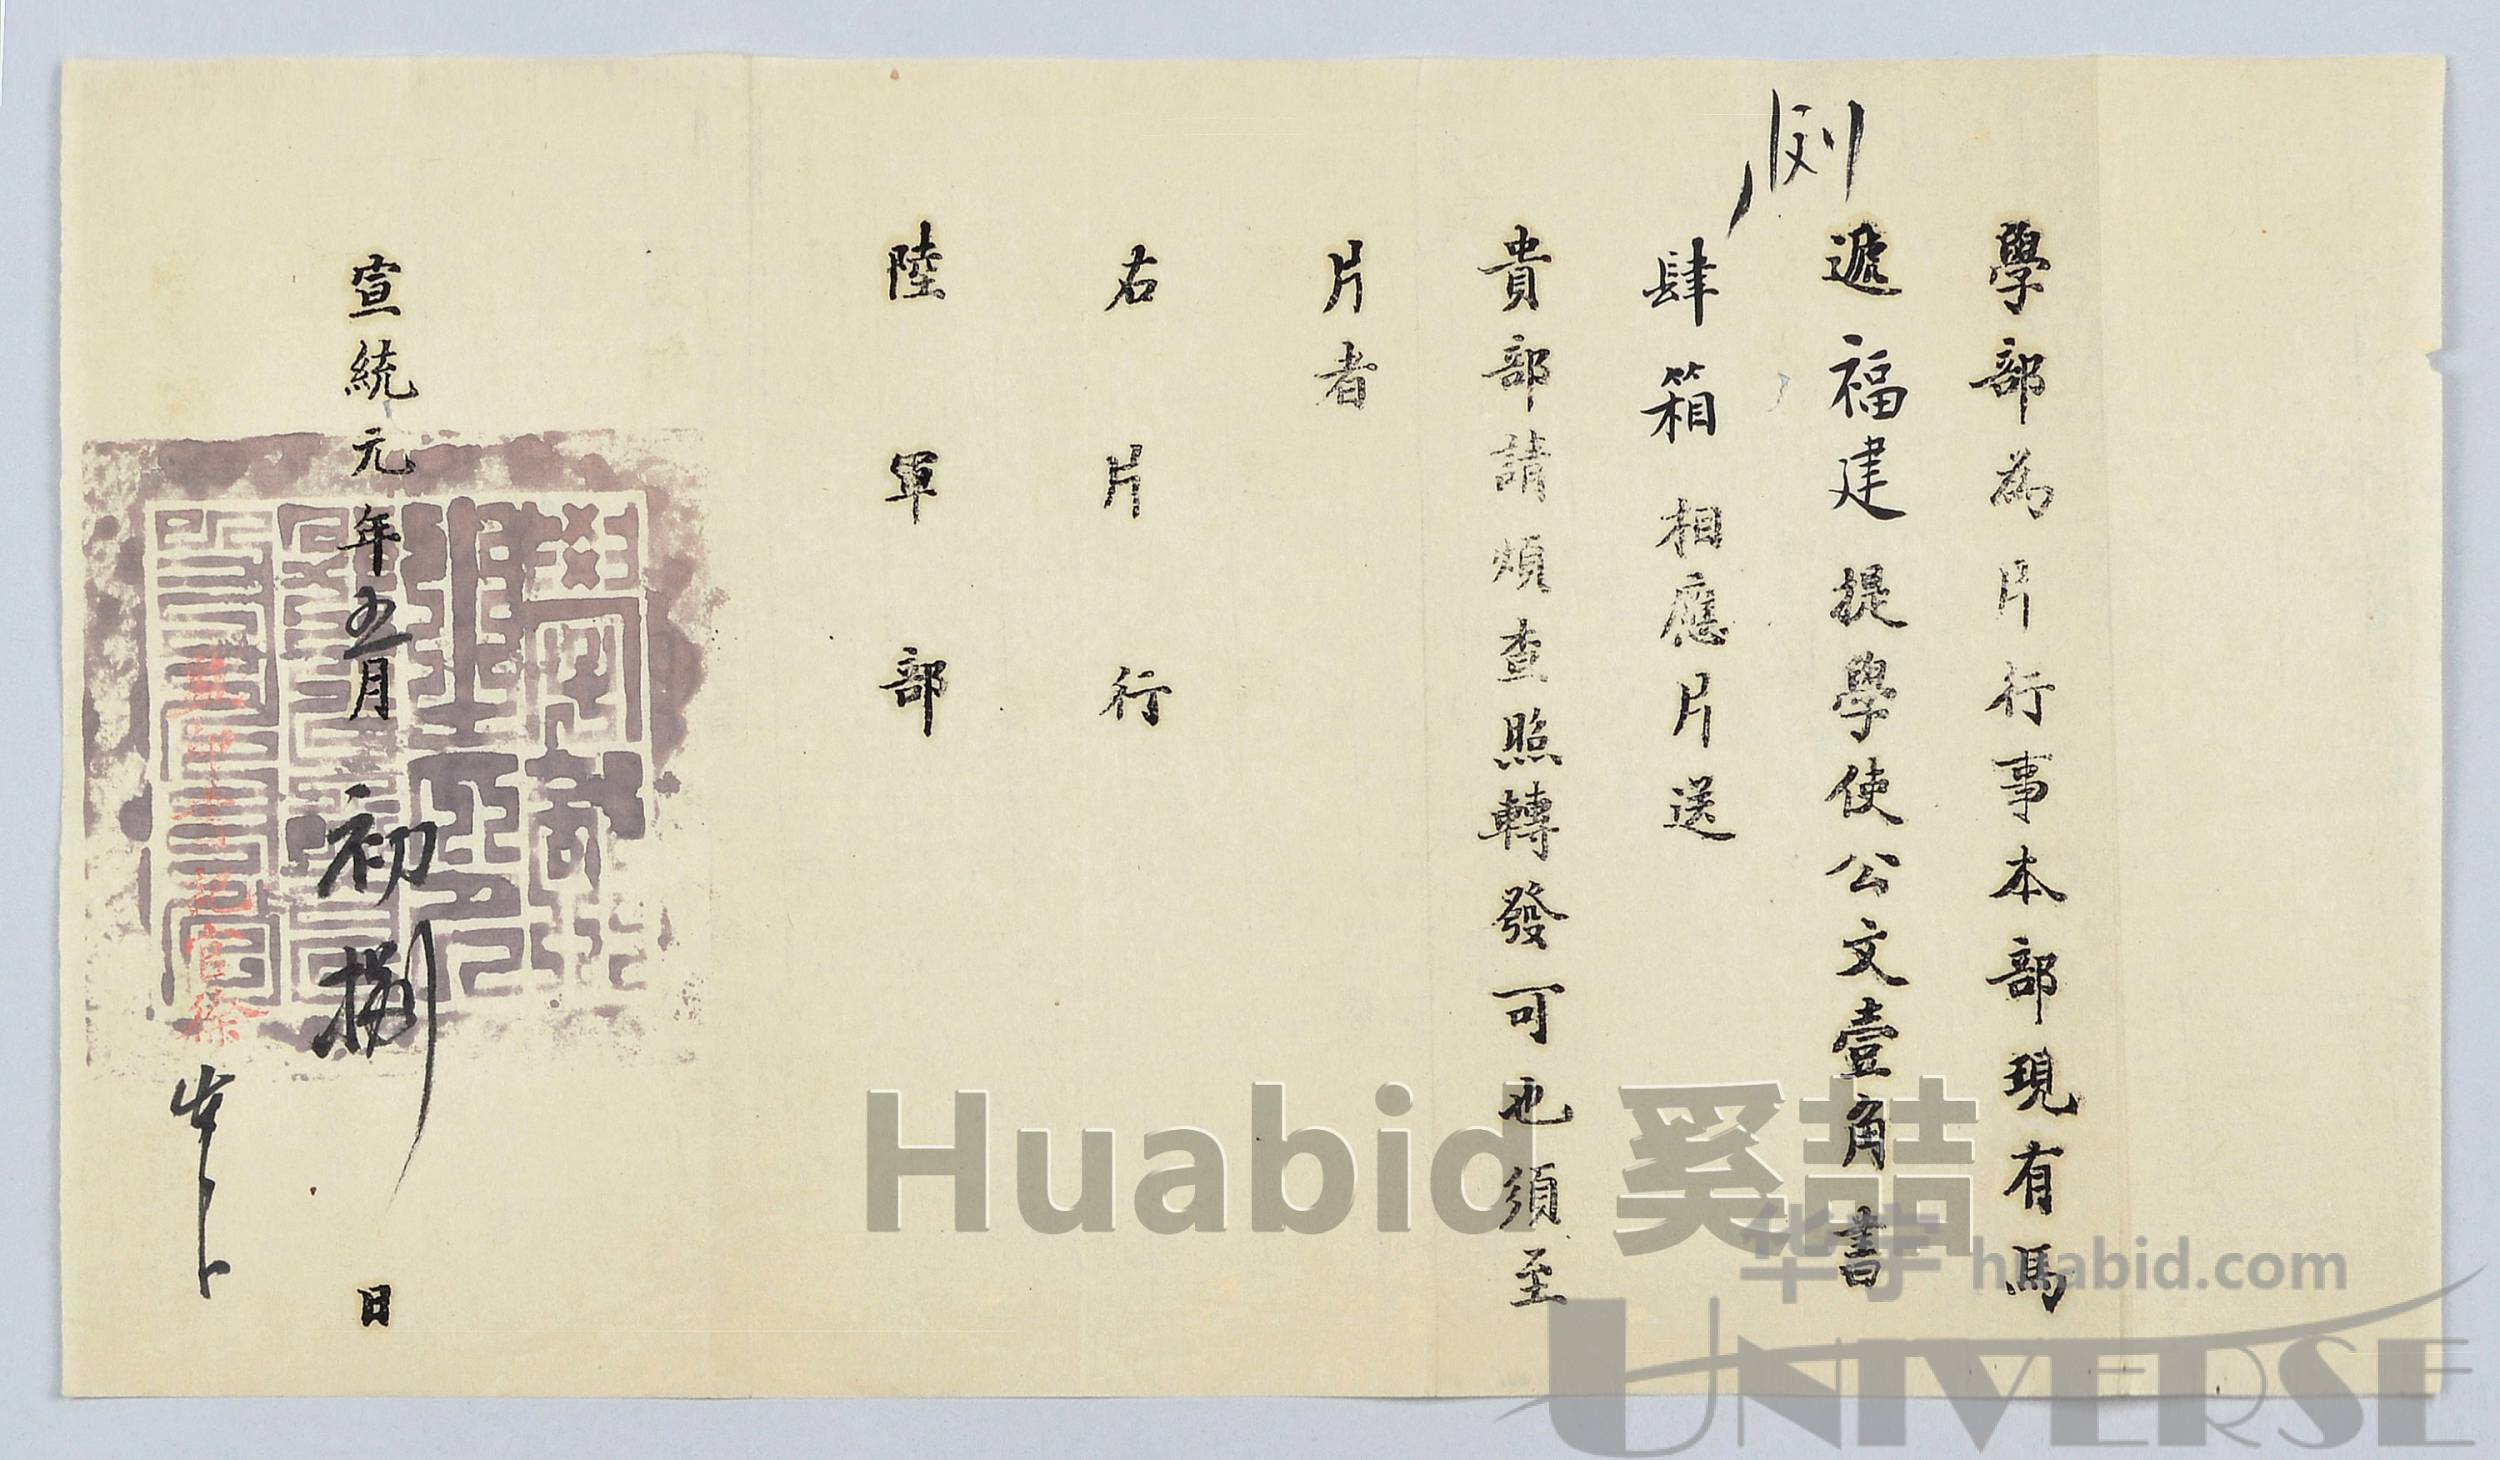 學部為片行事本部現有馬
遞福建提學使公文壹角書
肆箱相應片送
貴部請煩查照轉發可也須至
片者
右片行
陸軍部
宣統元年五月初捌日
監印
官徐
Huabid 奚喆
华宇 huabid.com
UNIVERSE